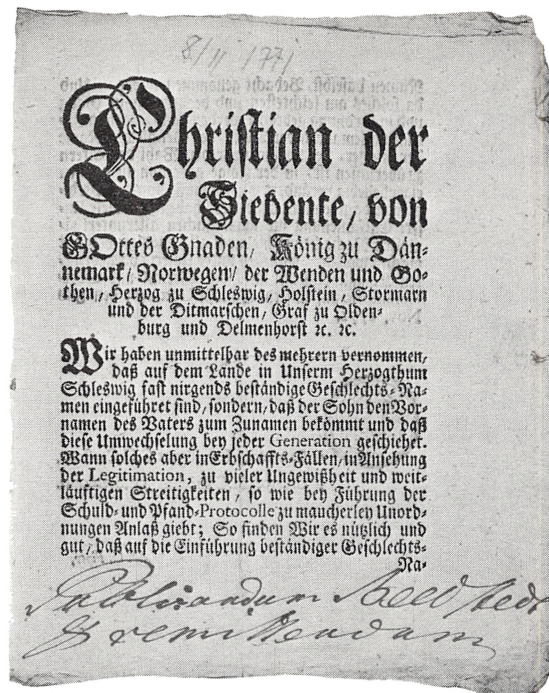 8/11 1771
Christian der
Siebente, von
GOttes Gnaden, König zu Dän-
nemark, Norwegen, der Wenden und Go-
then, Herzog zu Schleswig, Holstein, Stormarn
und der Ditmarschen, Graf zu Olden-
burg und Delmenhorst ꝛc. ꝛc.
Wir haben unmittelbar des mehrern vernommen,
daß auf dem Lande in Unserm Herzogthum
Schleswig fast nirgends beständige Geschlechts-Na-
men eingeführet sind, sondern, daß der Sohn den Vor-
namen des Vaters zum Zunamen bekömmt und daß
diese Umwechselung bey jeder Generation geschiehet.
Wann solches aber in Erbschaffts-Fällen, in Ansehung
der Legitimation, zu vieler Ungewißheit und weit-
läuftigen Streitigkeiten, so wie bey Führung der
Schuld- und Pfand-Protocolle zu maucherley Unord-
nungen Anlaß giebt; So finden Wir es nützlich und
gut, daß auf die Einführung beständiger Geschlechts-
Na-
Publicandum
& remittendum